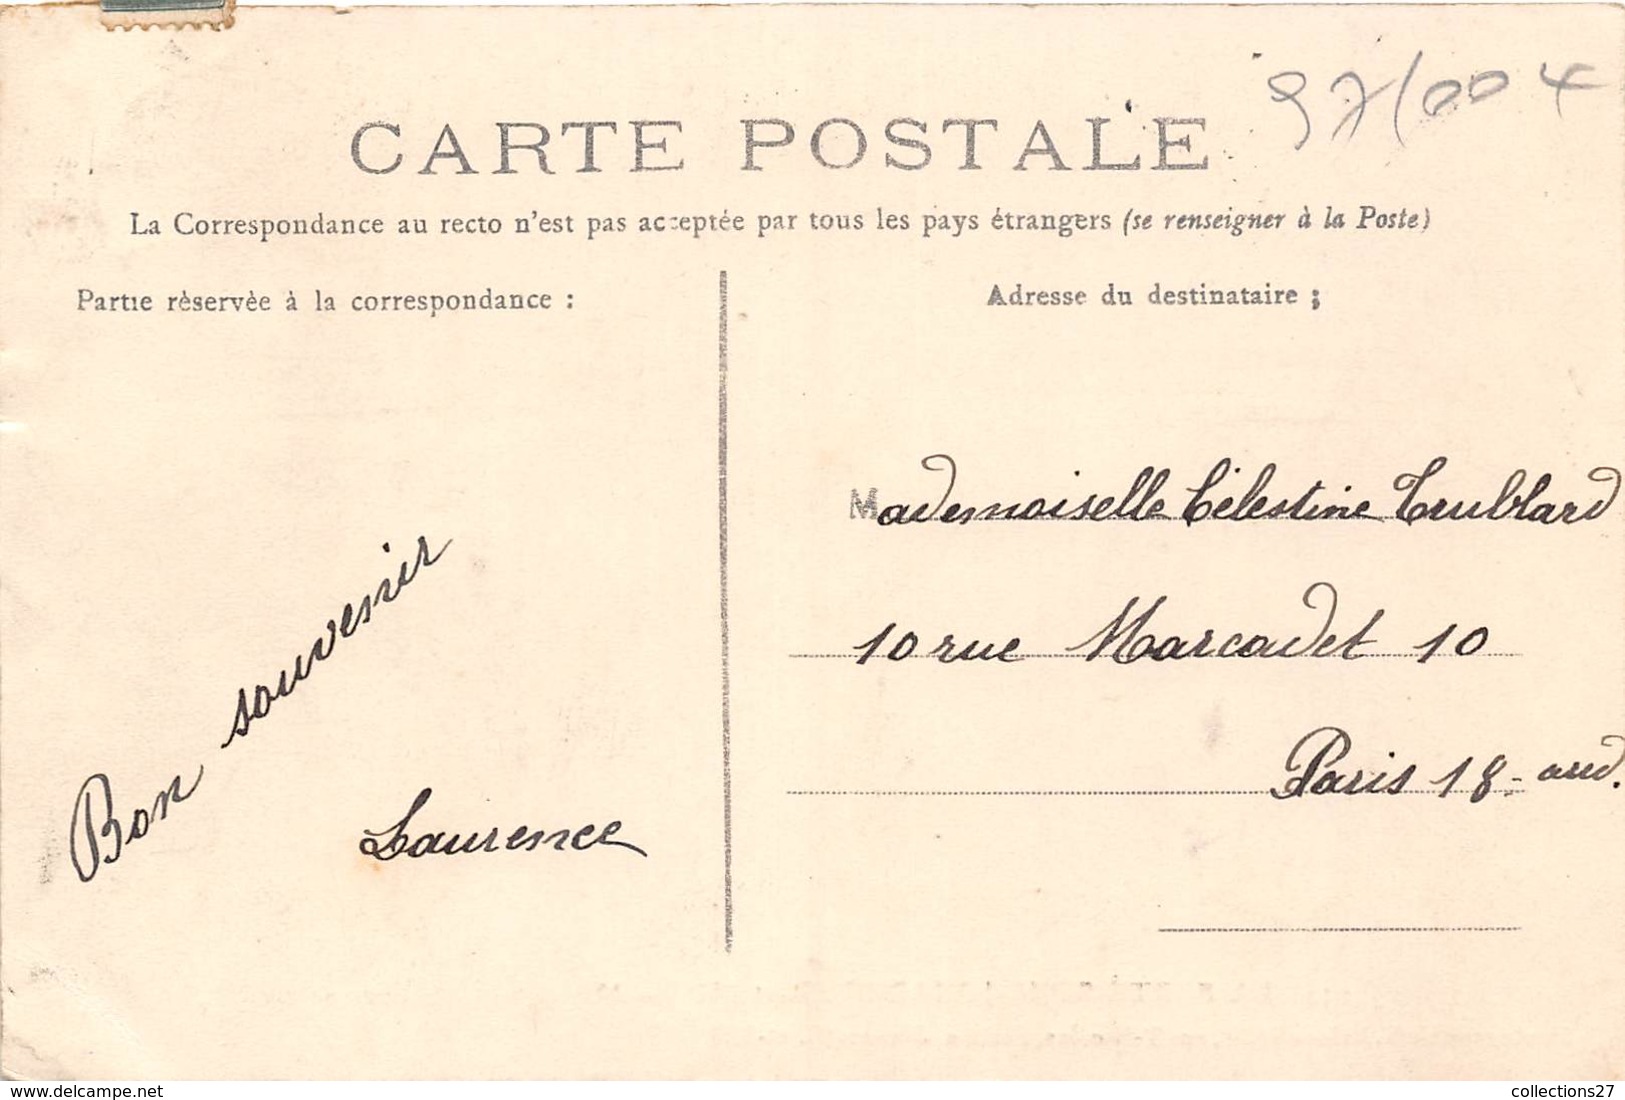 97/004
CARTE POSTALE
La Correspondance au recto n'est pas acceptée par tous les pays étrangers (se renseigner à la Poste)
Partie réservée à la correspondance :
Adresse du destinataire ;
Bon souvenir
Laurence
Mademoiselle Célestine Trublard
10 rue Marcadet 10
Paris 18. ard.
www.delcampe.net
collections27